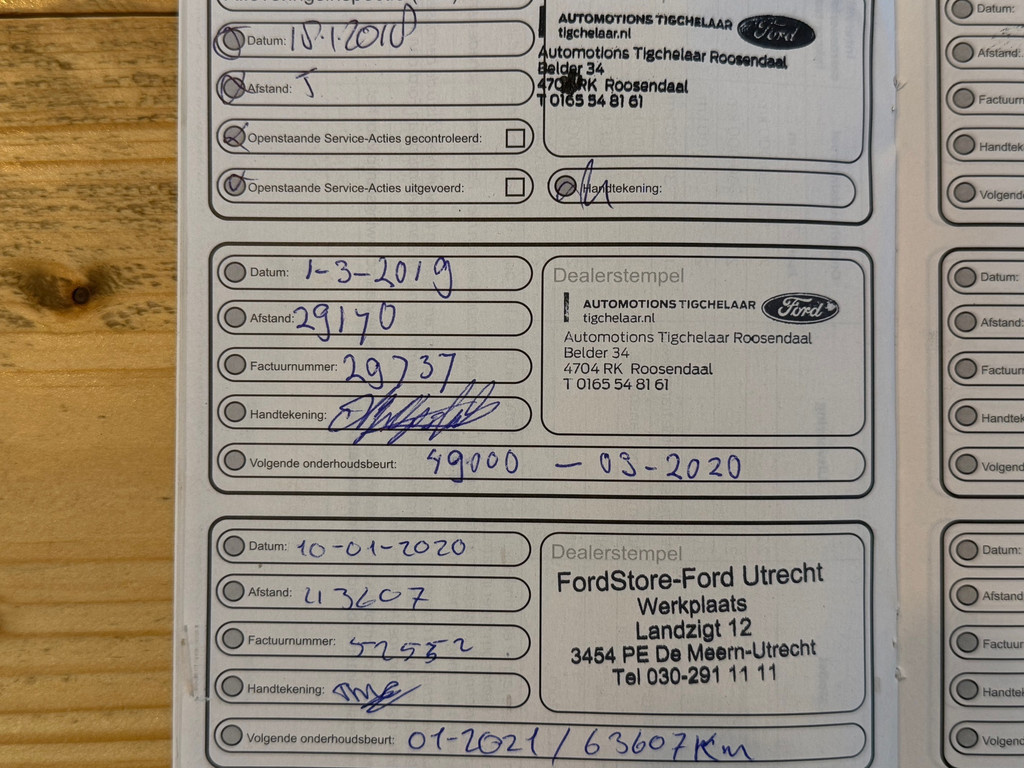 Datum: 15-1-2018
Afstand: 5
Openstaande Service-Acties gecontroleerd:
Openstaande Service-Acties uitgevoerd:
AUTOMOTIONS TIGCHELAAR Ford
tigchelaar.nl
Automotions Tigchelaar Roosendaal
Belder 34
4704 RK Roosendaal
T 0165 54 81 61
Handtekening:
Datum: 1-3-2019
Afstand: 29170
Factuurnummer: 29737
Handtekening:
Dealerstempel
AUTOMOTIONS TIGCHELAAR Ford
tigchelaar.nl
Automotions Tigchelaar Roosendaal
Belder 34
4704 RK Roosendaal
T 0165 54 81 61
Volgende onderhoudsbeurt: 49.000 - 03-2020
Datum: 10-01-2020
Afstand: 43607
Factuurnummer: 52552
Handtekening:
Dealerstempel
FordStore-Ford Utrecht
Werkplaats
Landzigt 12
3454 PE De Meern-Utrecht
Tel 030-291 11 11
Volgende onderhoudsbeurt: 01-2021 / 63607 Km
Datum:
Afstand:
Factuurn
Handtek
Volgend
Datum:
Afstand:
Factuurn
Handtek
Volgend
Datum:
Afstand
Factuur
Handtel
Volgend